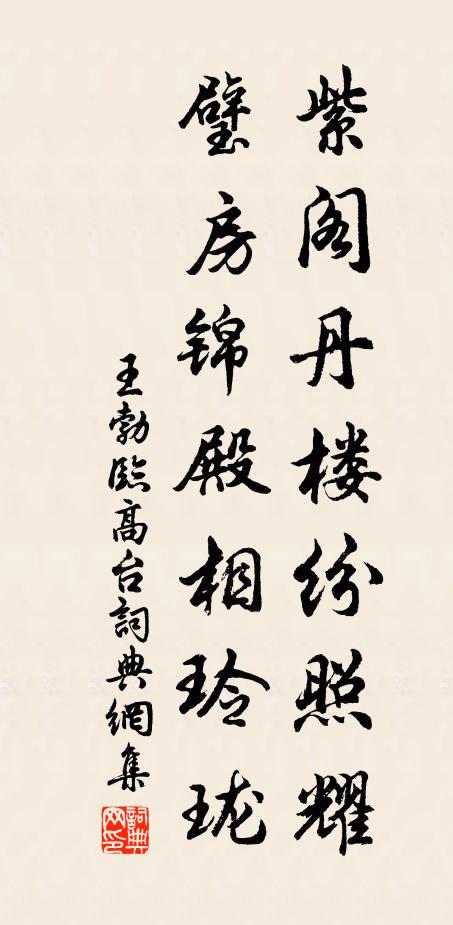 紫阁丹楼纷照耀
璧房锦殿相玲珑
王勃臨高台詞典網集
詞典网印